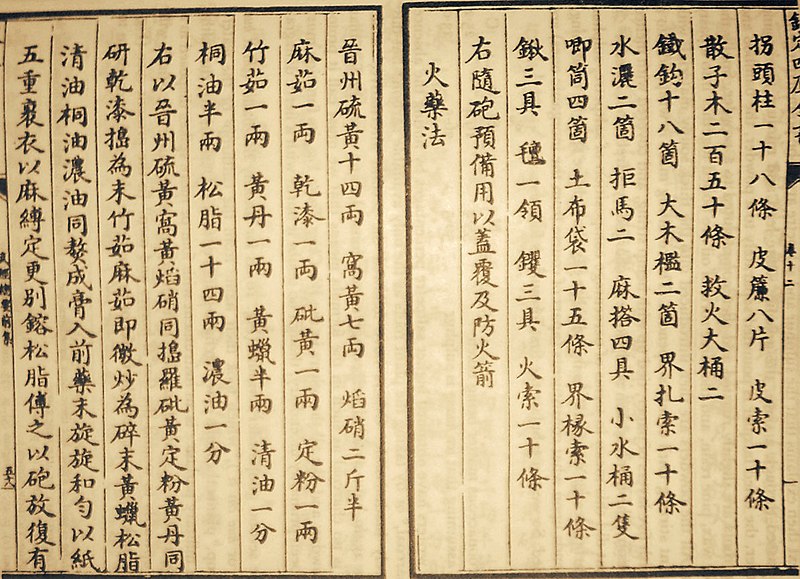 拐頭柱一十八條 皮簾八片 皮索一十條
散子木二百五十條 救火大桶二
鐵鈎十八箇 大木櫃二箇 界扎索一十條
水濰二箇 拒馬二 麻搭四具 小水桶二隻
唧筒四箇 土布袋一十五條 界椽索一十條
鍬三具 氊一領 钁三具 火索一十條
右隨砲預備用以蓋覆及防火箭
火藥法
晉州硫黃十四兩 窩黃七兩 焰硝二斤半
麻茹一兩 乾漆一兩 砒黃一兩 定粉一兩
竹茹一兩 黃丹一兩 黃蠟半兩 清油一分
桐油半兩 松脂一十四兩 濃油一分
右以晉州硫黃窩黃焰硝同搗羅砒黃定粉黃丹同
研乾漆搗為末竹茹麻茹即微炒為碎末黃蠟松脂
清油桐油濃油同熬成膏入前藥末旋旋和勻以紙
五重裹衣以麻縛定更別鎔松脂傅之以砲放復有